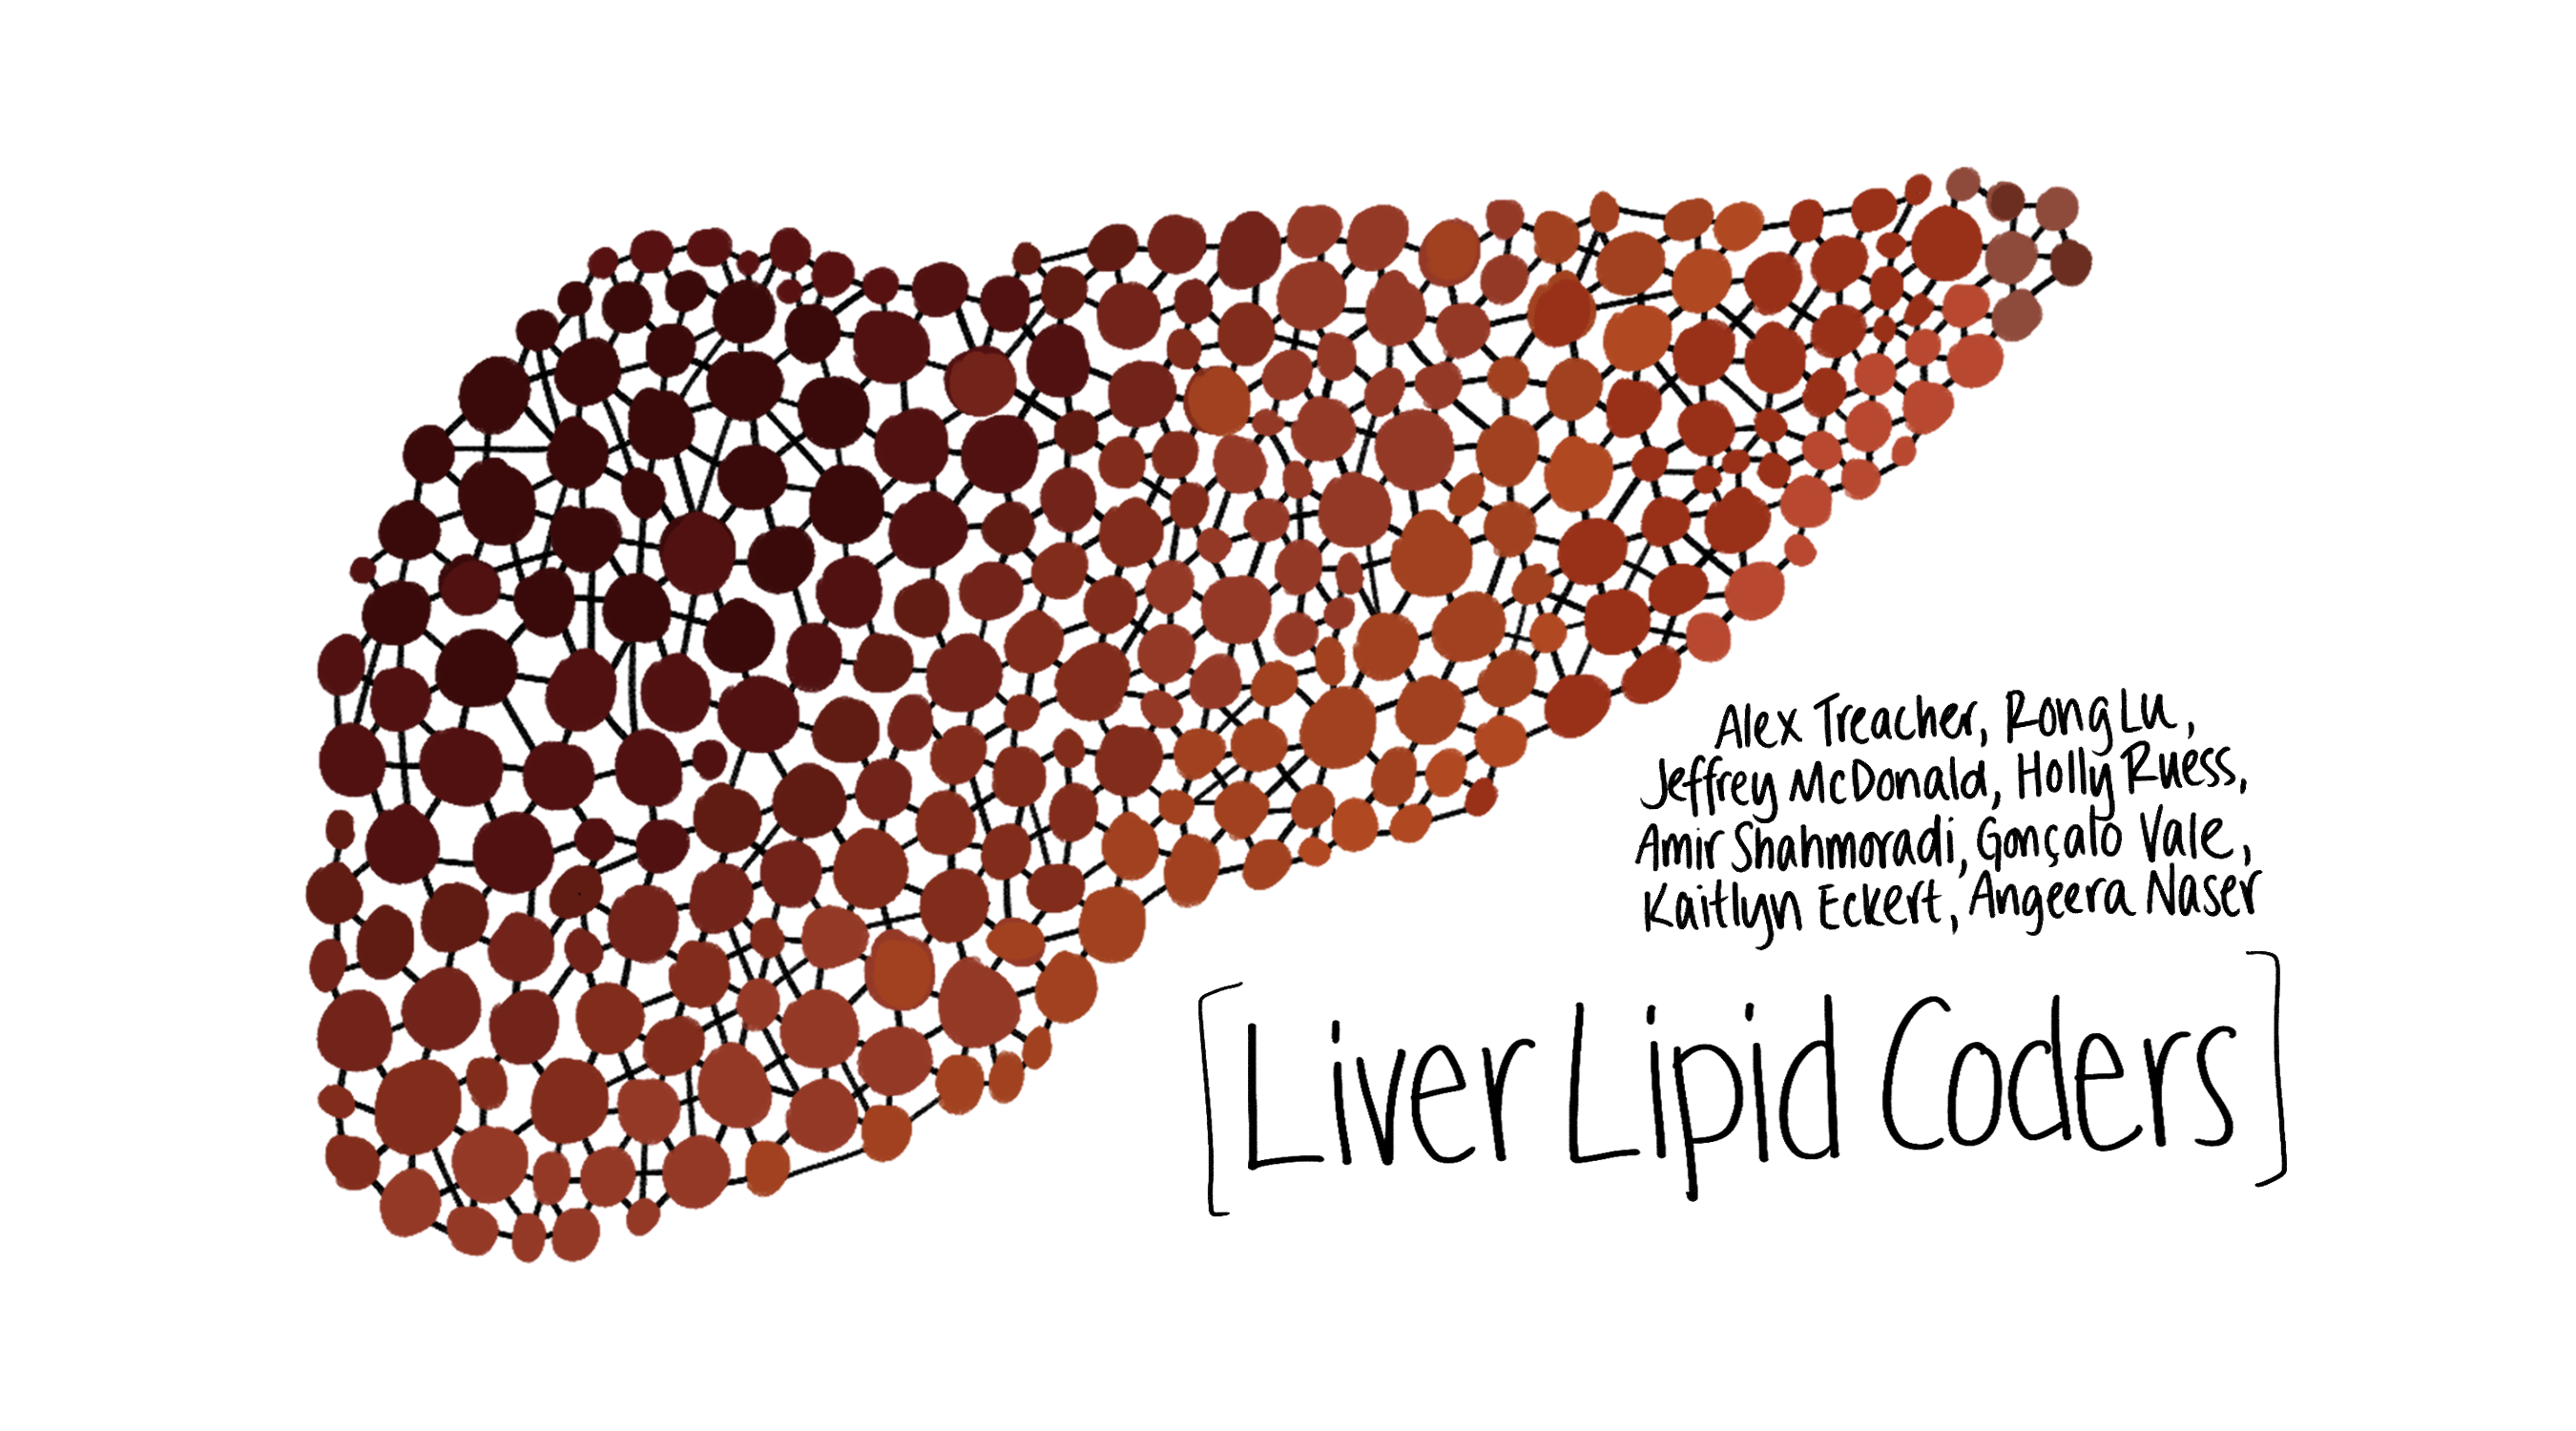 Alex Treacher, Rong Lu,
Jeffrey McDonald, Holly Ruess,
Amir Shahmoradi, Gonçalo Vale,
Kaitlyn Eckert, Angeera Naser
[Liver Lipid Coders]